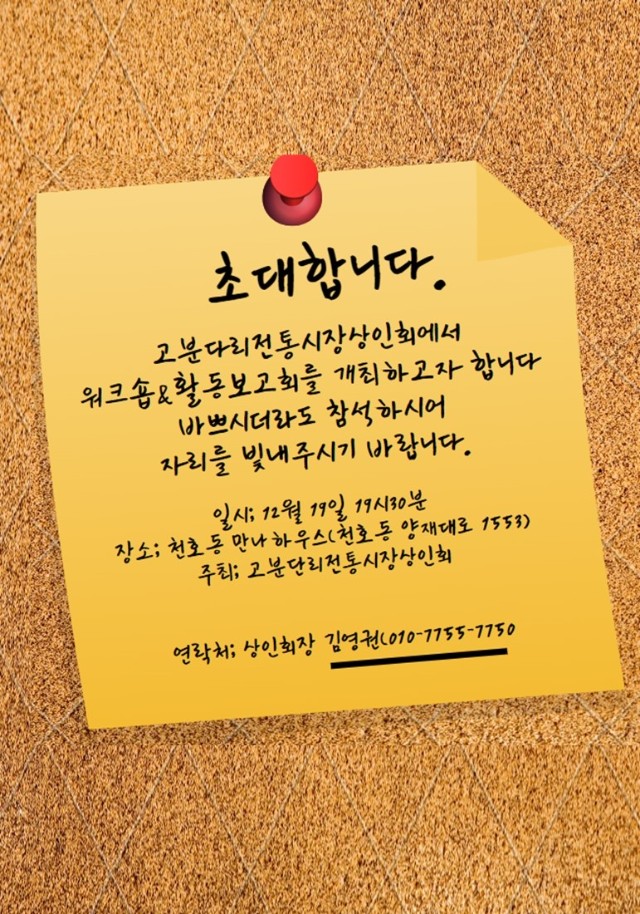 초대합니다.
고분다리전통시장상인회에서
워크숍&활동보고회를 개최하고자 합니다
바쁘시더라도 참석하시어
자리를 빛내주시기 바랍니다.
일시; 12월 19일 19시30분
장소; 천호동 만나하우스(천호동 양재대로 1553)
주최; 고분단리전통시장상인회
연락처; 상인회장 김영권(010-7755-7750